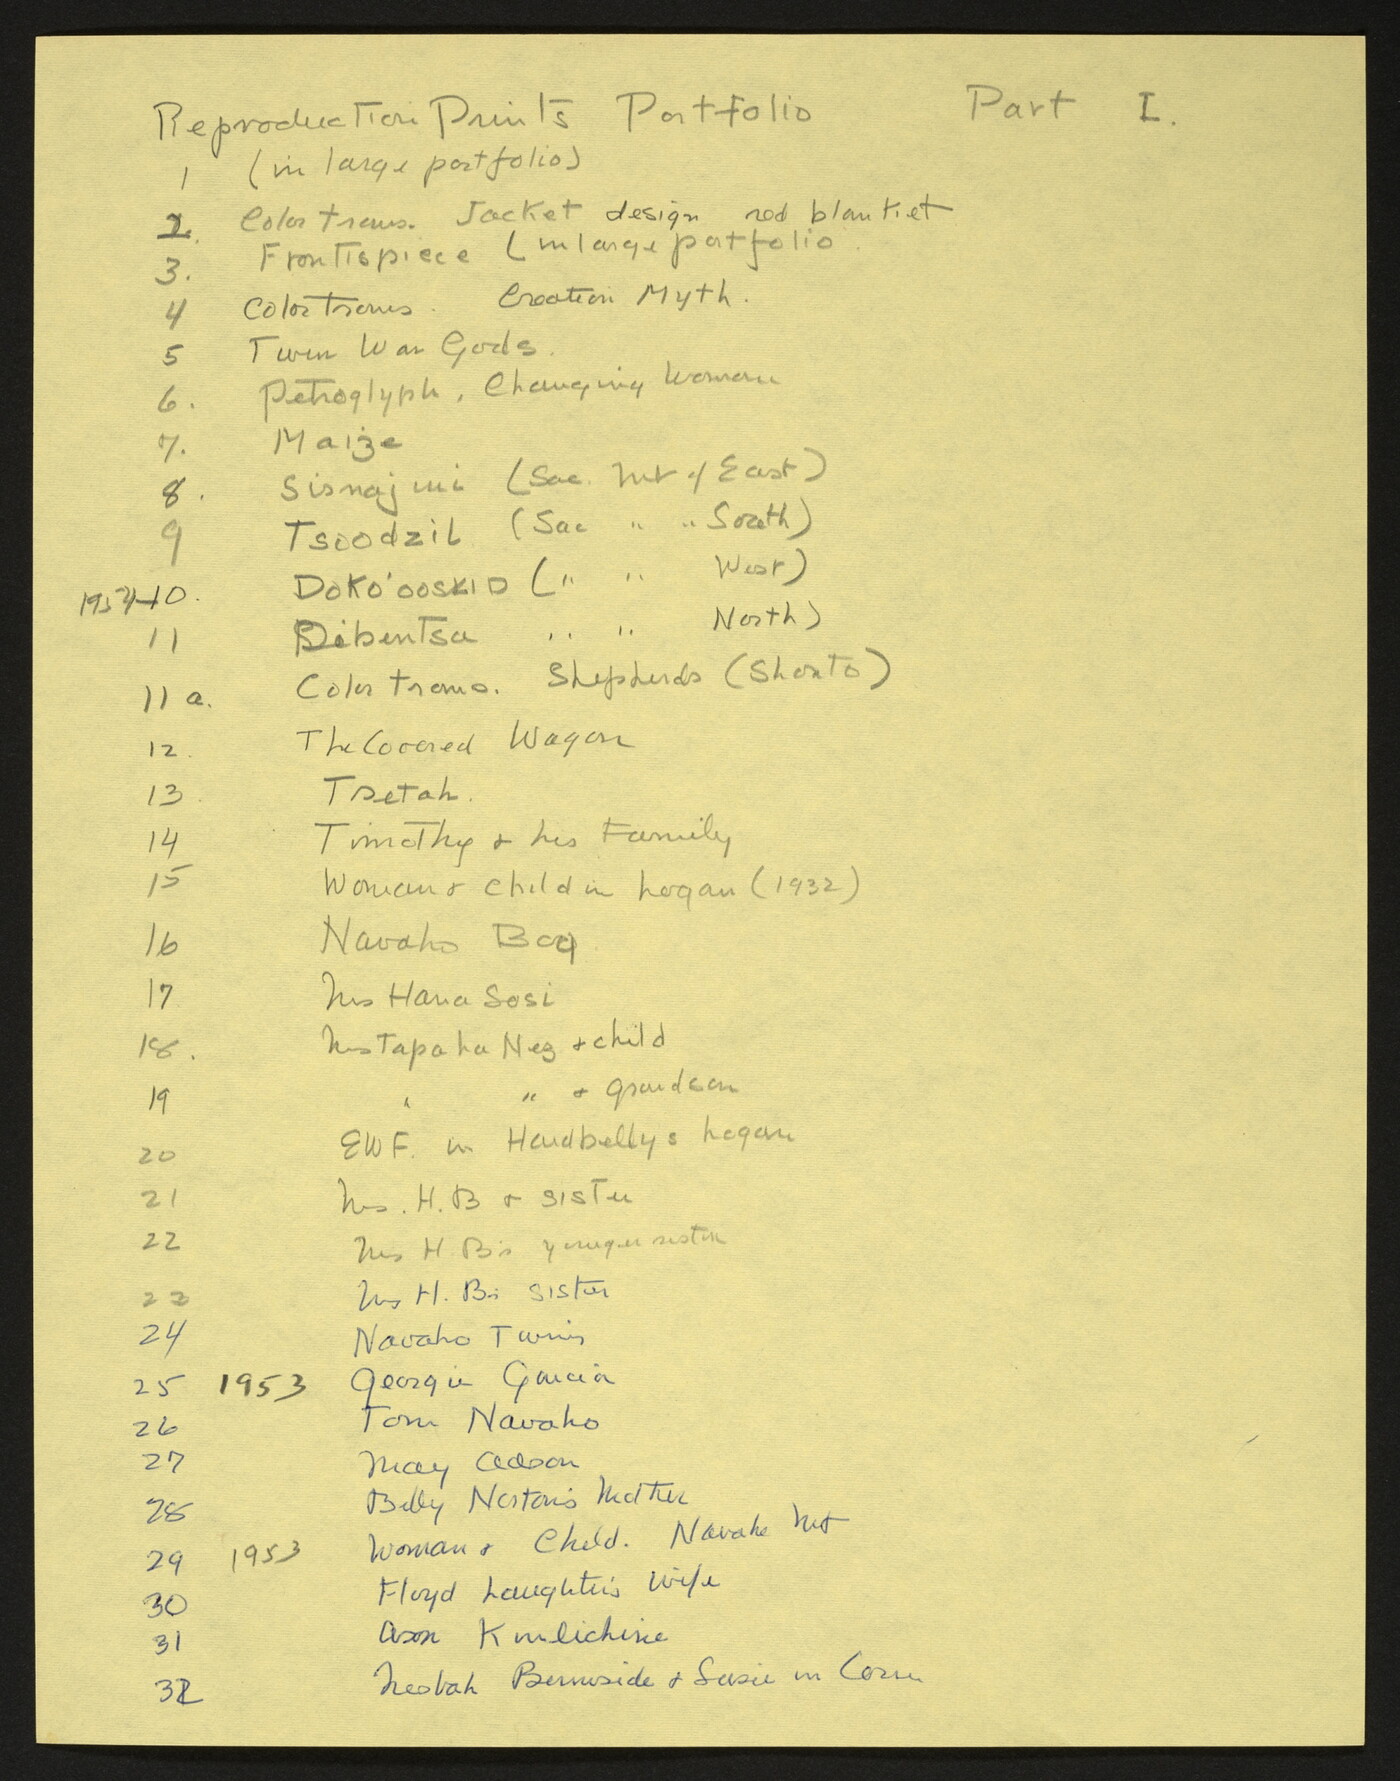 Reproduction Prints Portfolio Part I.
1 (in large portfolio)
2. Color trans. Jacket design red blanket
3. Frontispiece (in large portfolio
4 Color Trans. Creation Myth.
5 Twin War Gods.
6. Petroglyph, Changing Woman
7. Maize
8. Sisnajini (Sac. Mt of East)
9 Tsoodzil (Sac " " South)
1954-10. DOKO'OOSLID (" " West)
11 Dibentsa " " North)
11 a. Color trans. Shepherds (Shonto)
12. The Covered Wagon
13. Tsetah.
14 Timothy & his Family
15 Woman & child in hogan (1932)
16 Navaho Boy
17 Mrs Hana Sosi
18. Mrs Tapaha Nez & child
19 " " & grandson
20 EWF. in Hardbellys hogan
21 Mrs. H.B & sister
22 Mrs H B's younger sister
23 Mrs H. B's sister
24 Navaho Twins
25 1953 Georgie Garcia
26 Tom Navaho
27 May Adson
28 Billy Norton's Mother
29 1953 Woman & Child. Navaho Mt
30 Floyd Laughter's Wife
31 Ason Kinlichine
32 Nesbah Bernside & Susie in Corn